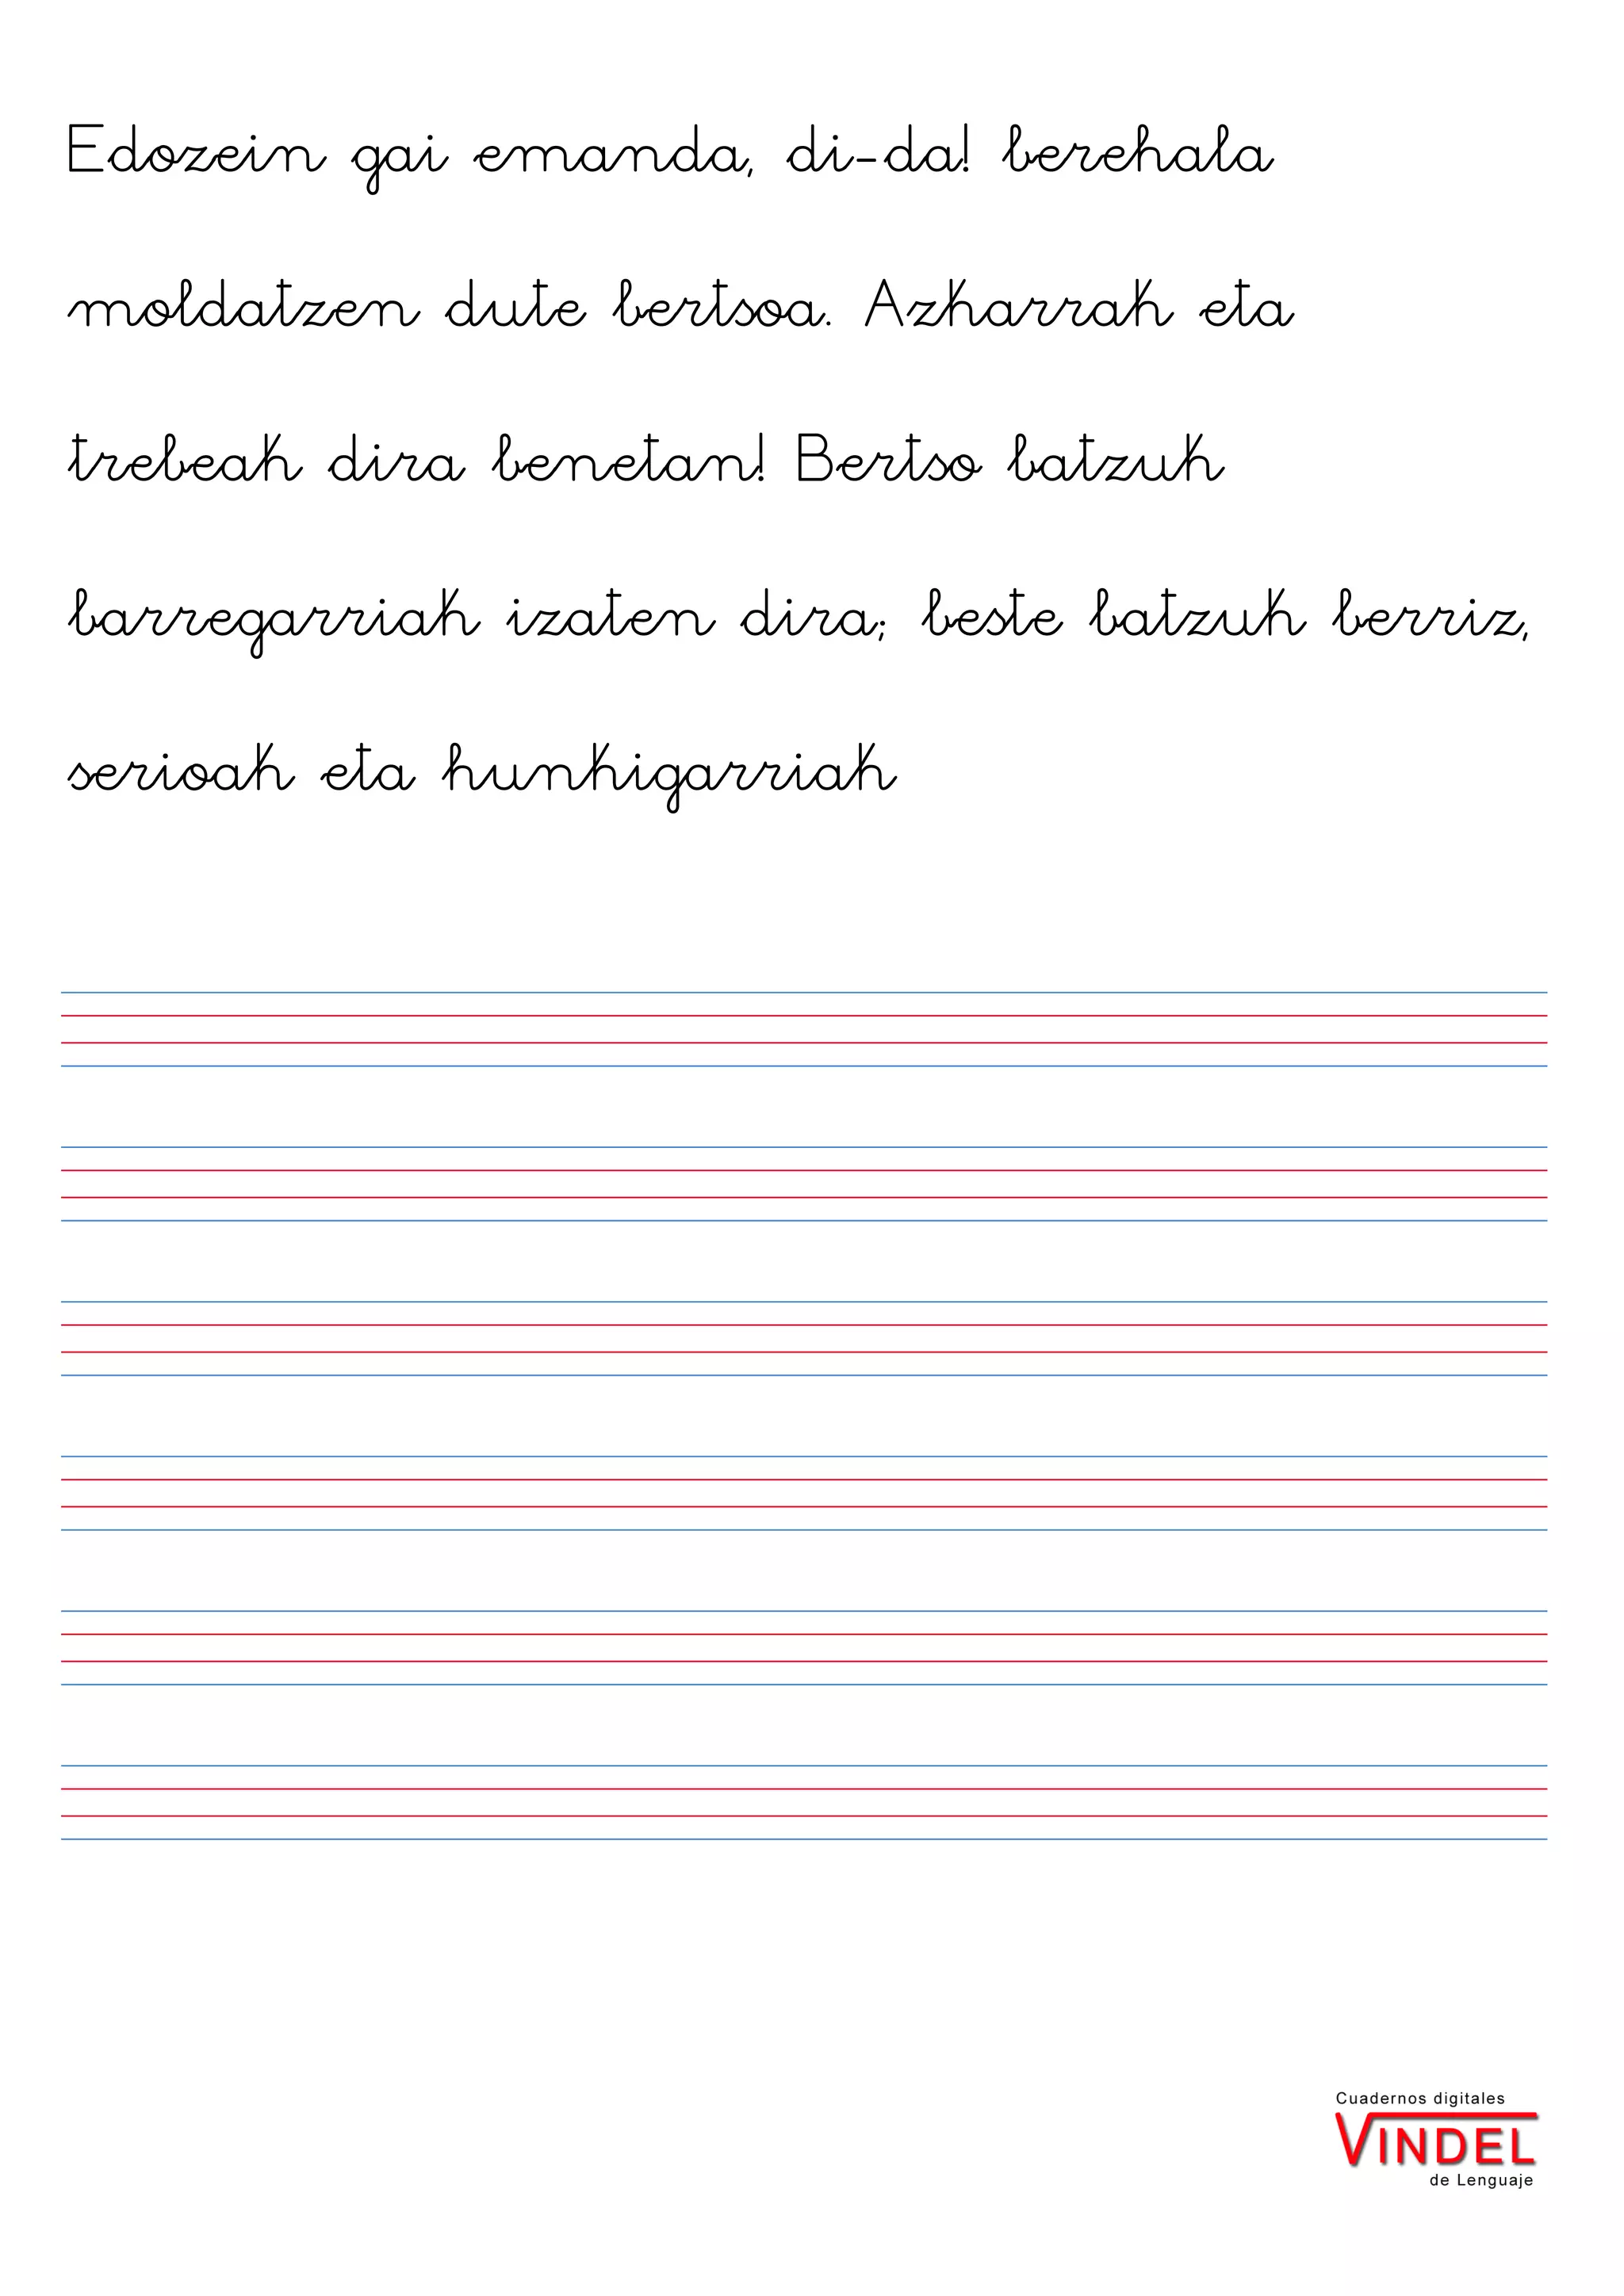 Edozein gai emanda, di-da! berehala
moldatzen dute bertsoa. Azkarrak eta
trebeak dira benetan! Bertso latzuk
barregarriak izaten dira; beste latzuk berriz,
serioak eta hunkigarriak
Cuadernos digitales
VINDEL
de Lenguaje